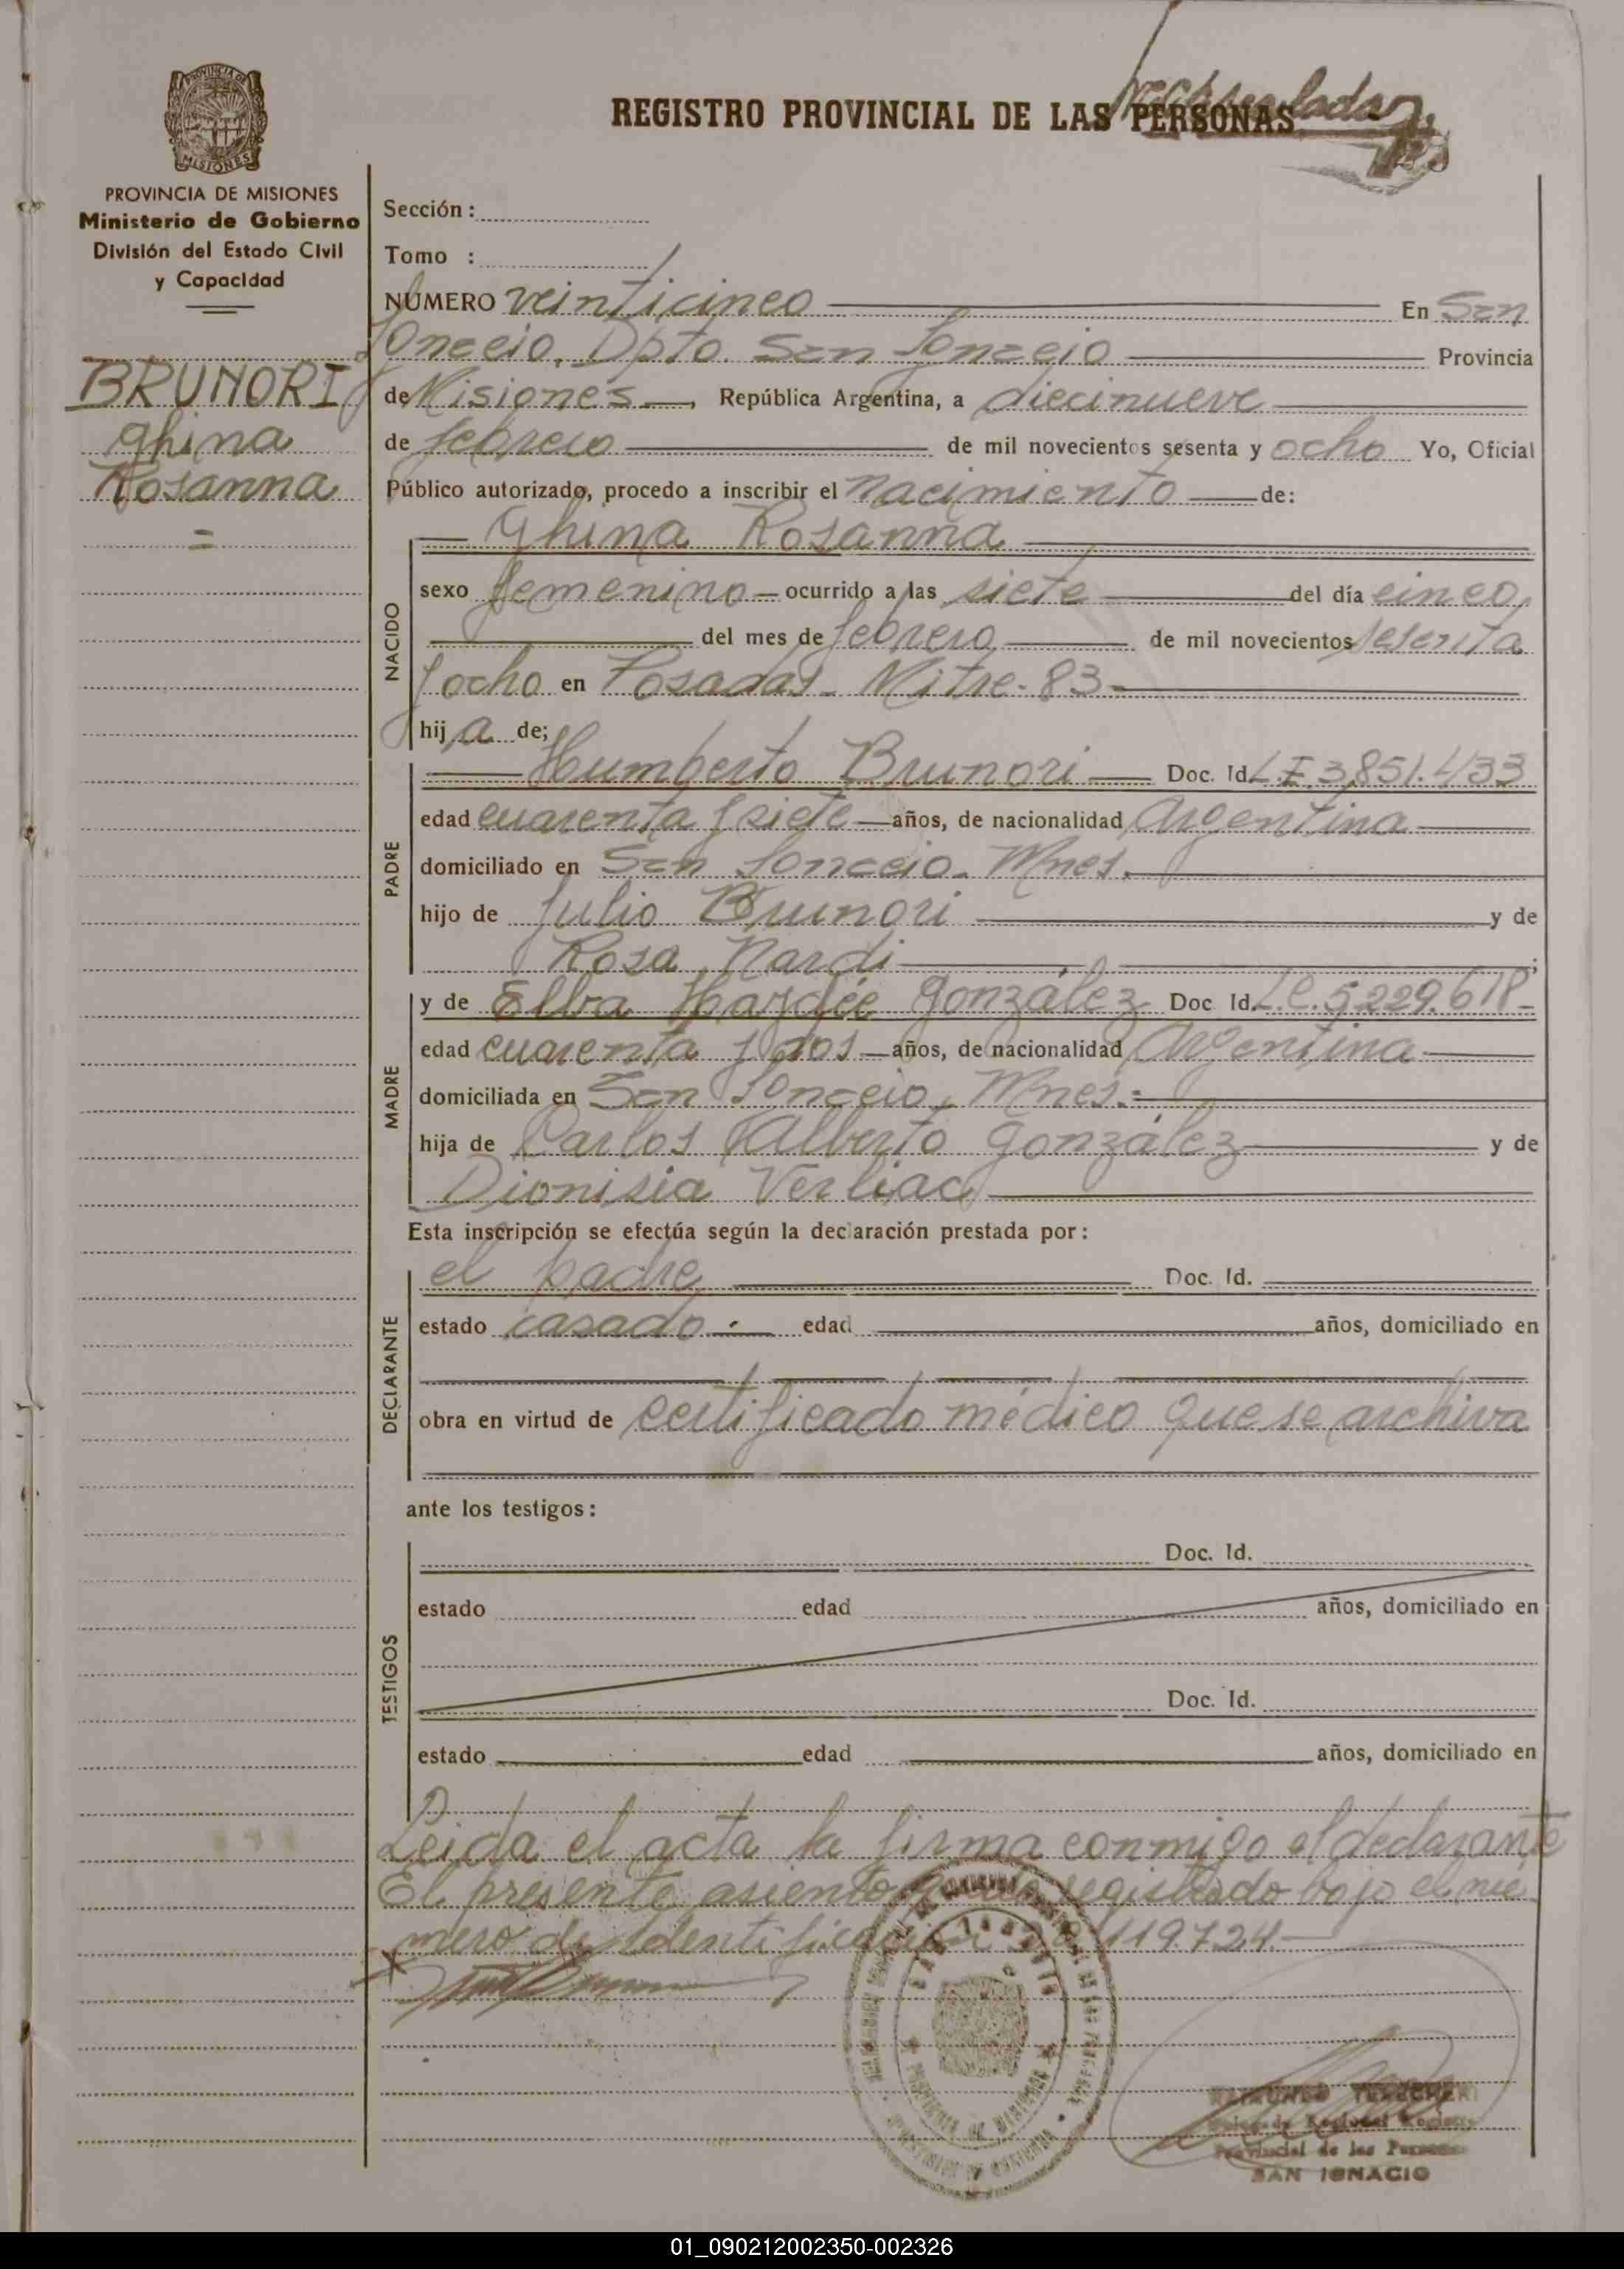 PROVINCIA DE
MISIONES
PROVINCIA DE MISIONES
Ministerio de Gobierno
División del Estado Civil
y Capacidad
BRUNORI
Ghina
Rosanna
=
REGISTRO PROVINCIAL DE LAS PERSONAS
Sección:
Tomo :
NÚMERO veinticinco En San
Ignacio, Dpto. San Ignacio Provincia
de Misiones, República Argentina, a diecinueve
de febrero de mil novecientos sesenta y ocho Yo, Oficial
Público autorizado, procedo a inscribir el nacimiento de:
Ghina Rosanna
NACIDO
sexo femenino ocurrido a las siete del día cinco
del mes de febrero de mil novecientos sesenta
y ocho en Posadas - Mitre - 83 -
hija de;
PADRE
Humberto Brunori Doc. Id. L.E. 3.851.433
edad cuarenta y siete años, de nacionalidad Argentina
domiciliado en San Ignacio - Mnes.
hijo de Julio Brunori y de
Rosa Nardi ;
MADRE
y de Elba Haydée González Doc Id. L.C. 5.229.618 -
edad cuarenta y dos años, de nacionalidad Argentina
domiciliada en San Ignacio, Mnes.
hija de Carlos Alberto González y de
Dionisia Verliac
Esta inscripción se efectúa según la declaración prestada por:
DECLARANTE
el padre Doc. Id.
estado casado edad años, domiciliado en
obra en virtud de certificado médico que se archiva
ante los testigos:
TESTIGOS
Doc. Id.
estado edad años, domiciliado en
Doc. Id.
estado edad años, domiciliado en
Leida el acta la firma conmigo el declarante
El presente asiento registrado bajo el nú
mero de Identificación 119.724.-
Provincial de las Personas
SAN IGNACIO
01_090212002350-002326